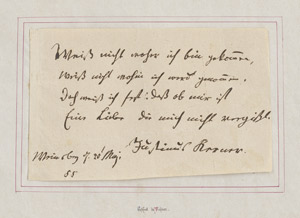 Weiß nicht woher ich bin gekommen,
Weiß nicht wohin ich werd genommen,
Doch weiß ich fest: daß ob mir ist
Eine Liebe die mich nicht vergißt.
Weinsberg Mai Justinus Kerner.
55